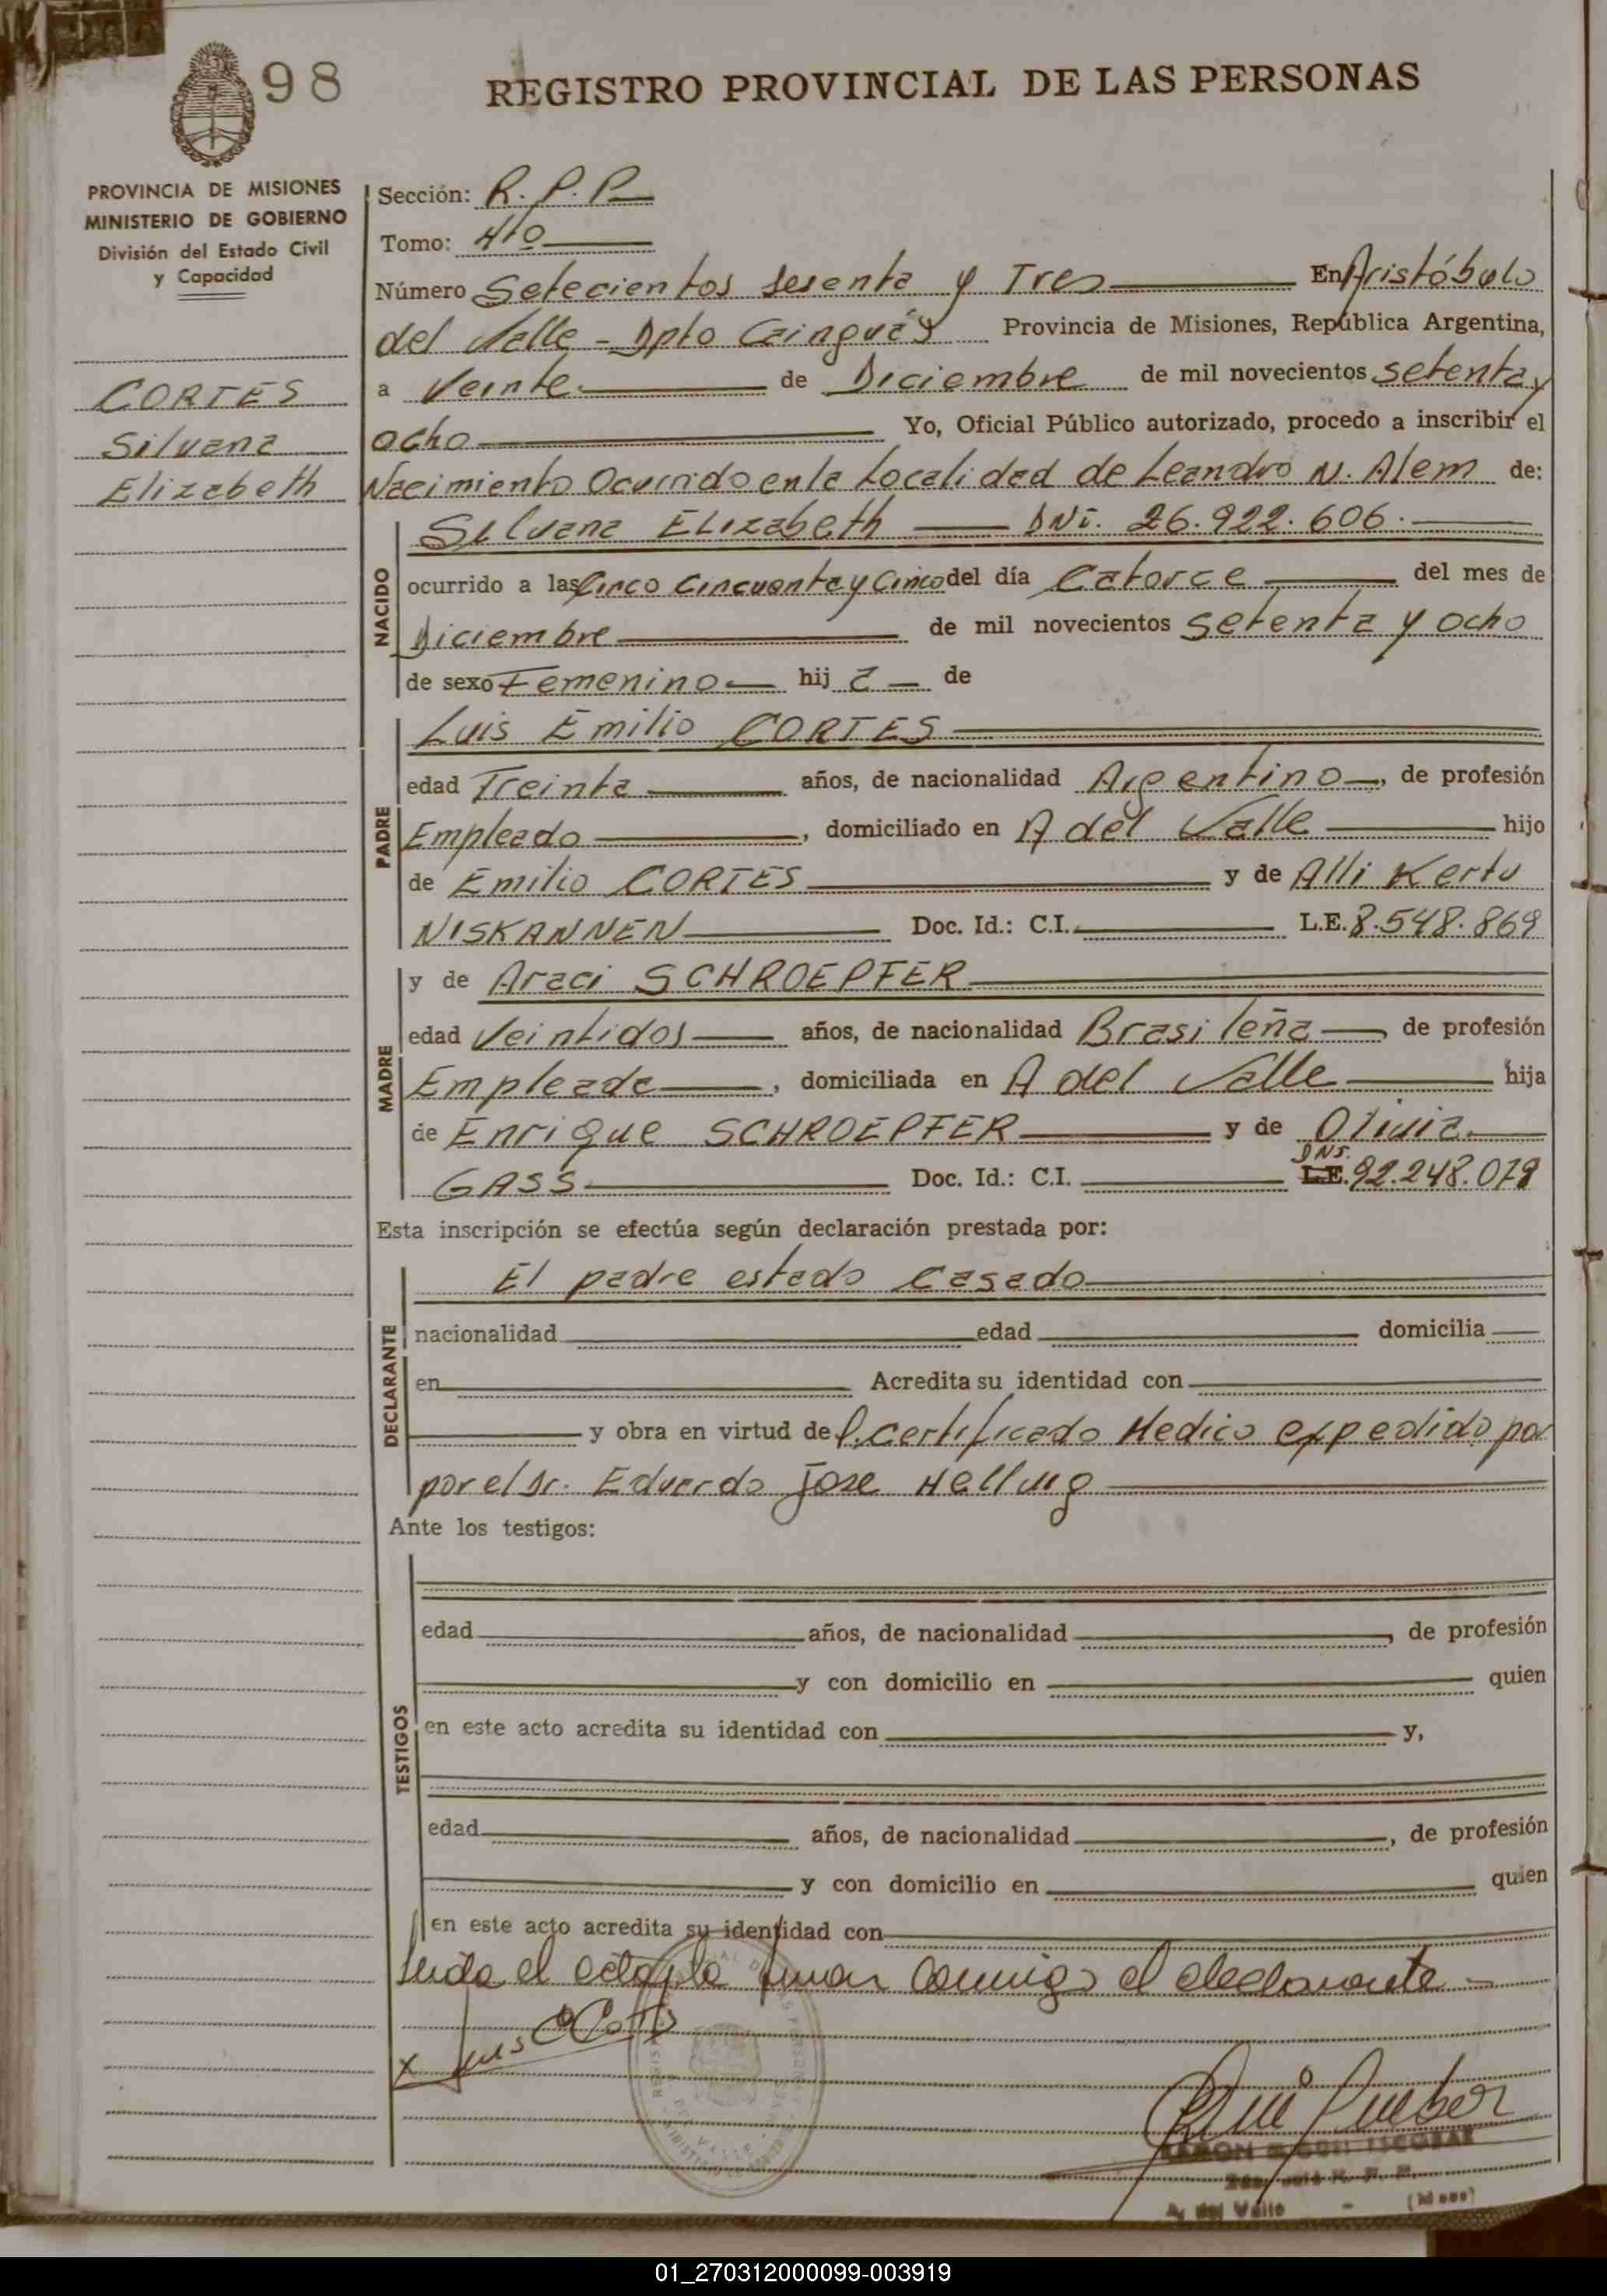 98
REGISTRO PROVINCIAL DE LAS PERSONAS
PROVINCIA DE MISIONES
MINISTERIO DE GOBIERNO
División del Estado Civil
y Capacidad
CORTES
Silvana
Elizabeth
Sección: R. P. P.
Tomo: 4to
Número Setecientos sesenta y Tres En Aristóbulo
del Valle - Dpto Cainguás Provincia de Misiones, República Argentina,
a Veinte de Diciembre de mil novecientos setenta y
ocho Yo, Oficial Público autorizado, procedo a inscribir el
Nacimiento Ocurrido en la Localidad de Leandro N. Alem de:
NACIDO
Silvana Elizabeth DNI. 26.922.606.
ocurrido a las Cinco Cincuenta y Cinco del día Catorce del mes de
Diciembre de mil novecientos setenta y ocho
de sexo Femenino hij a de
PADRE
Luis Emilio CORTES
edad Treinta años, de nacionalidad Argentino, de profesión
Empleado, domiciliado en A del Valle hijo
de Emilio CORTES y de Alli Kertu
NISKANNEN Doc. Id.: C.I. L.E. 8.548.869
MADRE
y de Araci SCHROEPFER
edad Veintidos años, de nacionalidad Brasileña, de profesión
Empleada, domiciliada en A del Valle hija
de Enrique SCHROEPFER y de Olivia
GASS Doc. Id.: C.I. L.E. DNI. 92.248.079
Esta inscripción se efectúa según declaración prestada por:
DECLARANTE
El padre estado Casado
nacionalidad edad domicilia
en Acredita su identidad con
y obra en virtud de l. certificado Medico expedido por
por el Dr. Eduardo Jose Hellwig
Ante los testigos:
TESTIGOS
edad años, de nacionalidad, de profesión
y con domicilio en quien
en este acto acredita su identidad con y,
edad años, de nacionalidad, de profesión
y con domicilio en quien
en este acto acredita su identidad con
Leida el acta la firman conmigo el declarante -
x Luis
A. del Valle - (Mnes)
01_270312000099-003919